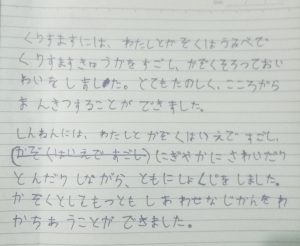 くりすますには、わたしとかぞくはうみべで
くりすますきゅうかをすごし、かぞくそろっておい
わいをしました。とてもたのしく、こころから
まんきつすることができました。
しんねんには、わたしとかぞくはいえですごし、
かぞくはいえですごし にぎやかにさわいだり
とんだりしながら、ともにしょくじをしました。
かぞくとしてもっともしあわせなじかんをわ
かちあうことができました。